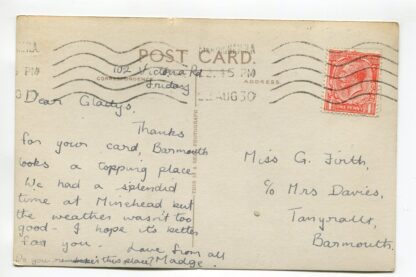 POST CARD.
CORRESPONDENCE
ADDRESS.
12.15 PM
AUG 30
102 Victoria Rd
Friday
Dear Gladys,
Thanks
for your card, Barmouth
looks a topping place
We had a splendid
time at Minehead but
the weather wasn't too
good - I hope its better
for you. Love from all
Do you this place? Madge.
Miss G. Firth,
c/o Mrs Davies,
Tanyrallt,
Barmouth.